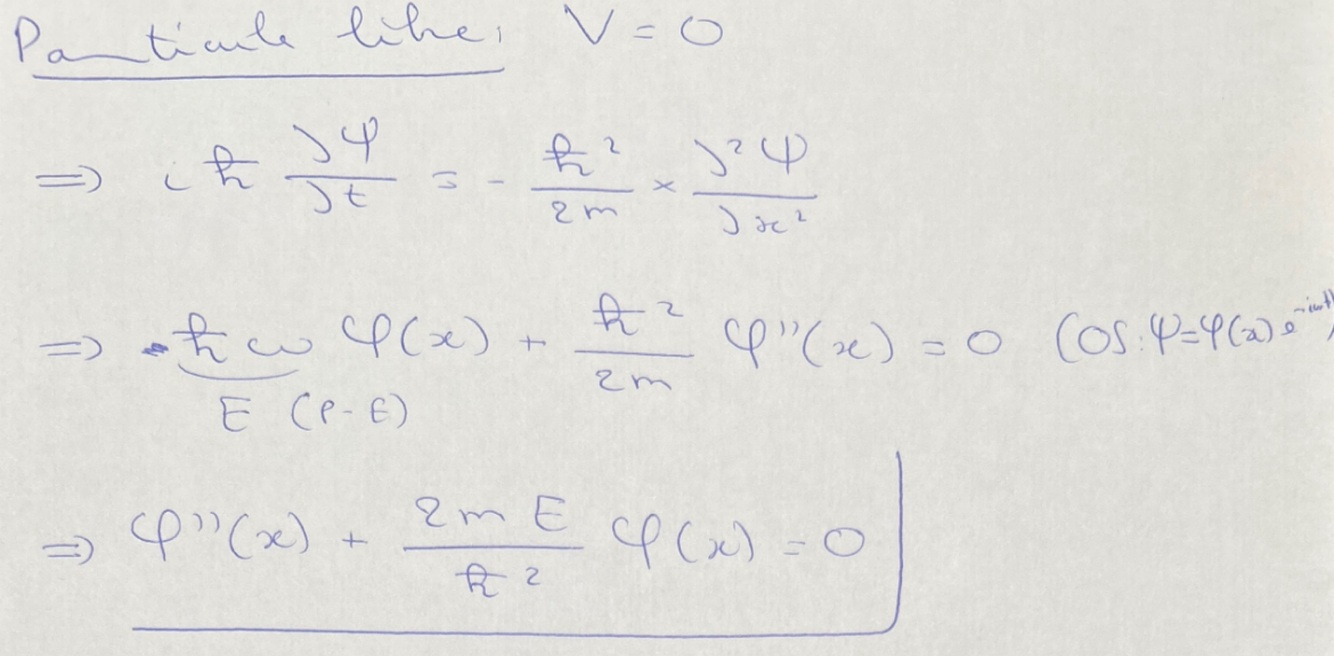 Particule libre: V = 0
=> iℏ ∂Ψ/∂t = - ℏ²/2m × ∂²Ψ/∂x²
=> ℏω φ(x) + ℏ²/2m φ''(x) = 0 (OS: Ψ=φ(x)e^-iωt)
E (P-E)
=> φ''(x) + 2mE/ℏ² φ(x) = 0